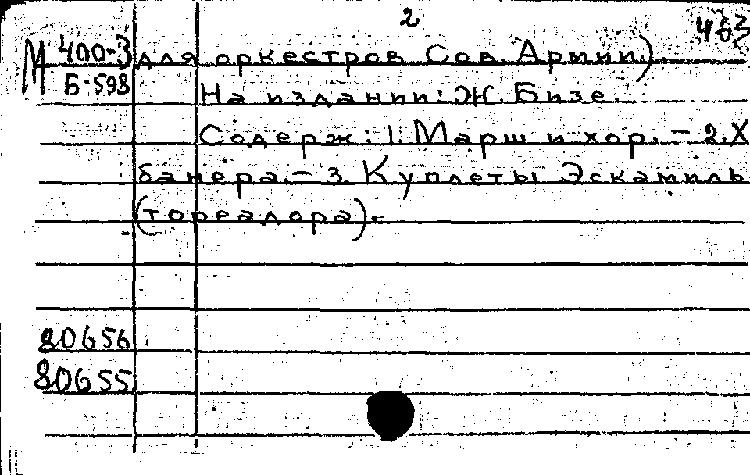 2
463
М 400-3 для оркестров Сов. Армии.)
Б-598
На издании: Ж. Бизе.
Содерж.: 1. Марш и хор. – 2. Х
банера. – 3. Куплеты Эскамиль
(тореадора). –
80656
80655